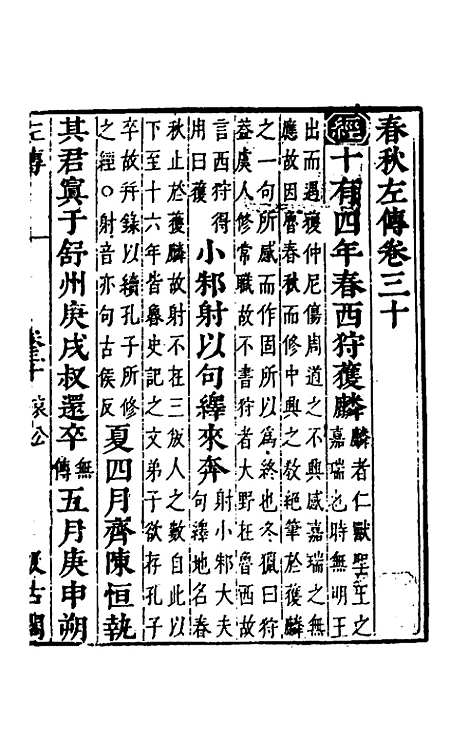 春秋左傳卷三十
經十有四年春西狩獲麟
麟者仁獸聖王之
嘉瑞也時無明王
出而遇獲仲尼傷周道之不興感嘉瑞之無
應故因魯春秋而修中興之敎絕筆於獲麟
之一句所感而作固所以為終也冬獵曰狩
蓋虞人修常職故不書狩者大野在魯西故
言西狩得
用曰獲
小邾射以句繹來奔
射小邾大夫
句繹地名春
秋止於獲麟故射不在三叛人之數自此以
下至十六年皆魯史記之文弟子欲存孔子
卒故幷錄以續孔子所修
之經○射音亦句古侯反
夏四月齊陳恒執
其君寘于舒州庚戌叔還卒
無
傳
五月庚申朔
左傳
卷三十
哀公
汲古閣